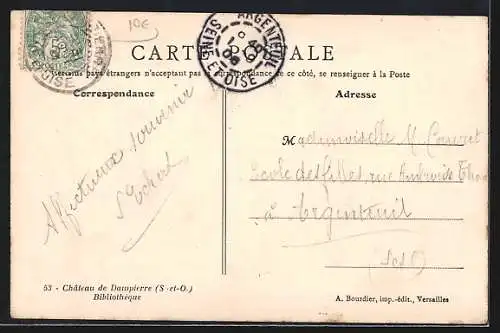 10€
ARGENTEUIL
SEINE-ET-OISE
CARTE POSTALE
Certains pays étrangers n'acceptant pas la correspondance de ce côté, se renseigner à la Poste
Correspondance
Adresse
Affectueux souvenir
Mademoiselle M.
Ecole des filles, rue Ambroise Thomas
à Argenteuil
(S et O)
53 - Château de Dampierre (S-et-O.)
Bibliothèque
A. Bourdier, imp.-édit., Versailles